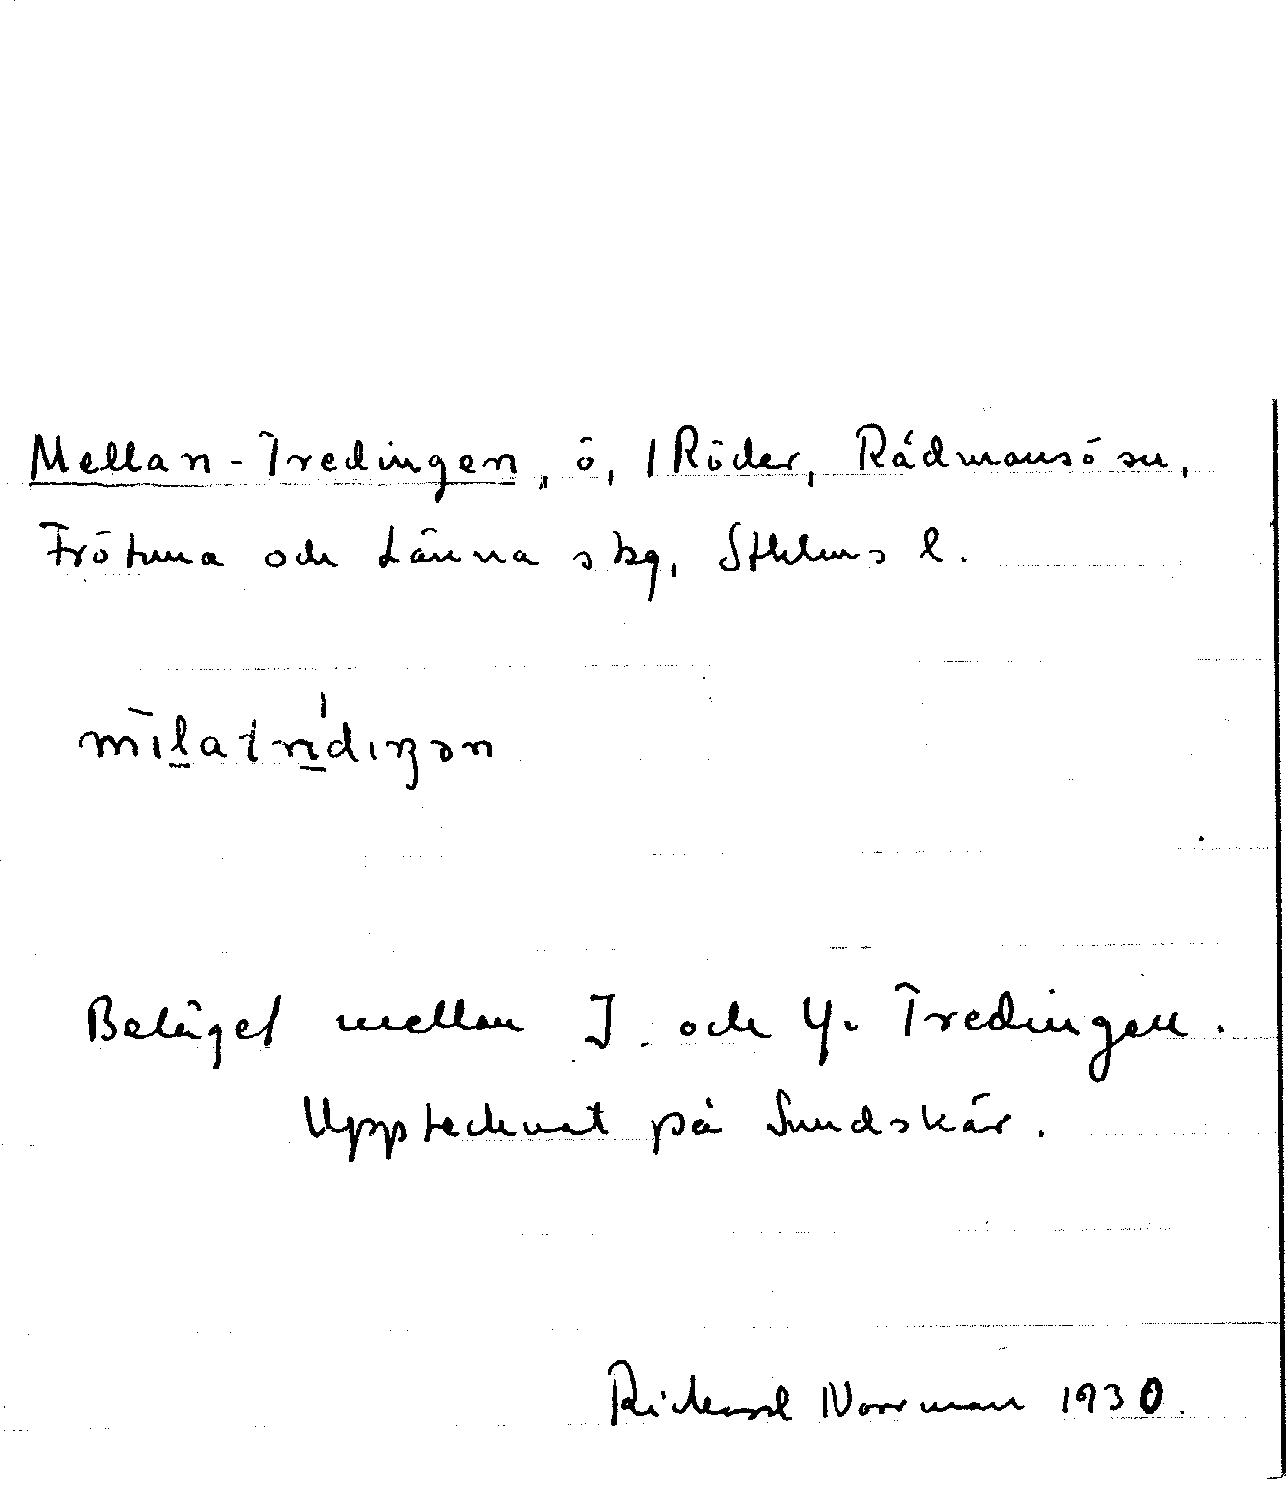 Mellan-Tredingen, ö, i Röder, Rådmansö sn,
Frötuna och Länna skg, Sthlms l.
mīlatrídiŋən
Beläget mellan I. och Y. Tredingen.
Upptecknat på Sundskär.
Rickard Norrman 1930.